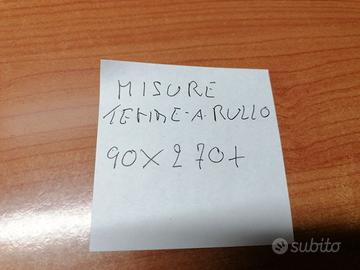 MISURE
TENDE-A-RULLO
90X270+
subito